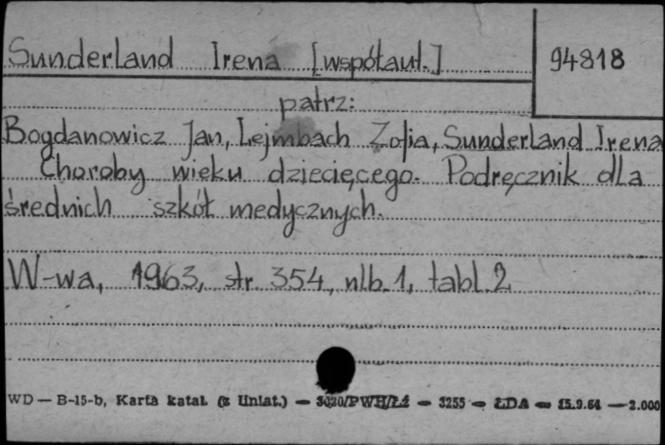 Sunderland Irena [współaut.] 94818
patrz:
Bogdanowicz Jan, Lejmbach Zofia, Sunderland Irena
Choroby wieku dziecięcego. Podręcznik dla
średnich szkół medycznych.
W-wa, 1963, str. 354, nlb. 1, tabl. 2
WD — B-15-b, Karta katal. (z liniat.) — — 3255 — ŁDA — 15.9.64 — 2.000